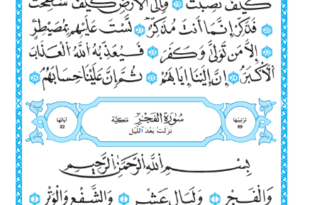 كَيْفَ نُصِبَتْ وَإِلَى الْأَرْضِ كَيْفَ سُطِحَتْ
فَذَكِّرْ إِنَّمَا أَنْتَ مُذَكِّرٌ لَسْتَ عَلَيْهِمْ بِمُصَيْطِرٍ
إِلَّا مَنْ تَوَلَّىٰ وَكَفَرَ فَيُعَذِّبُهُ اللَّهُ الْعَذَابَ
الْأَكْبَرَ إِنَّ إِلَيْنَا إِيَابَهُمْ ثُمَّ إِنَّ عَلَيْنَا حِسَابَهُمْ
ترتيبها 89 سُورَةُ الْفَجْرِ مَكِّيَّة آياتها 32
نزلت بعد الليل
بِسْمِ اللَّهِ الرَّحْمَٰنِ الرَّحِيمِ
وَالْفَجْرِ وَلَيَالٍ عَشْرٍ وَالشَّفْعِ وَالْوَتْرِ